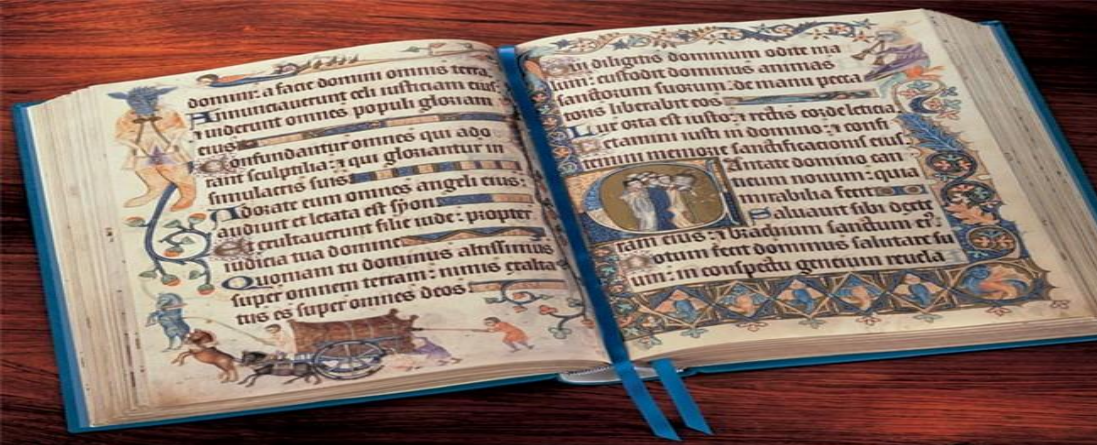 domini: a facie domini omnis terra.
Annunciauerunt celi iusticiam eius:
⁊ uiderunt omnes populi gloriam
eius
Confundantur omnes qui ado
rant sculptilia: ⁊ qui gloriantur in
simulacris suis:
Adorate eum omnes angeli eius:
audiuit et letata est syon
Et exultauerunt filie iude: propter
iudicia tua domine
Quoniam tu dominus altissimus
super omnem terram: nimis exalta
tus es super omnes deos
Qui diligitis dominum odite ma
lum: custodit dominus animas
sanctorum suorum: de manu pecca
toris liberabit eos
Lux orta est iusto: ⁊ rectis corde leticia
Letamini iusti in domino: ⁊ confi
temini memorie sanctificacionis eius.
Cantate domino can
ticum nouum: quia
mirabilia fecit
Saluauit sibi dexte
ram eius: ⁊ brachium sanctum ei⁹
Notum fecit dominus salutare su
um: in conspectu gencium reuela